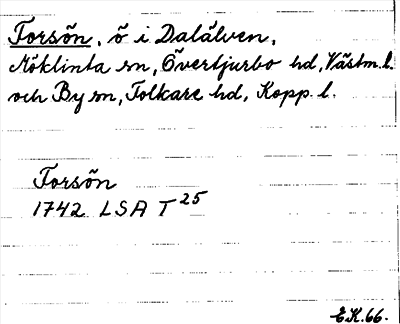 Torsön, ö i Dalälven,
Möklinta sn, Övertjurbo hd, Västm. l.
och By sn, Folkare hd, Kopp. l.
Torsön
1742 LSA T 25
E.K. 66.